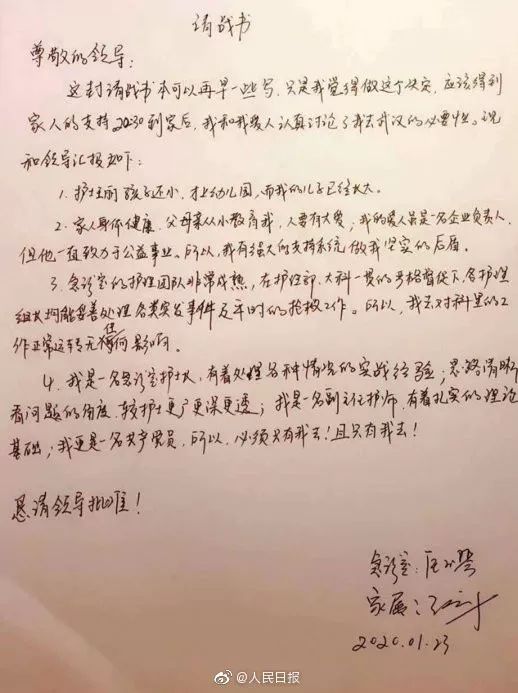 请战书
尊敬的领导：
这封请战书本可以再早一些写，只是我觉得做这个决定，应该得到
家人的支持20:30到家后，我和我爱人认真讨论了我去武汉的必要性。现
向领导汇报如下：
1、护士丽孩子还小，才上幼儿园，而我的儿子已经长大。
2、家人身体健康，父母亲从小教育我，人要有大爱；我的爱人虽是一名企业负责人，
但他一直致力于公益事业。所以，我有强大的支持系统做我坚实的后盾。
3、急诊室的护理团队非常成熟，在护理部、大科一贯的严格督促下，各护理
组长均能妥善处理各类突发事件及平时的抢救工作。所以，我去对科里的工
作正常运转无任何影响。
4、我是一名急诊室护士长，有着处理各种情况的实战经验；思路清晰
看问题的角度，较护士更广更深更透；我是一名副主任护师，有着扎实的理论
基础；我更是一名共产党员，所以，必须只有我去！且只有我去！
恳请领导批准！
急诊室：
家属：
2020.01.23
@人民日报